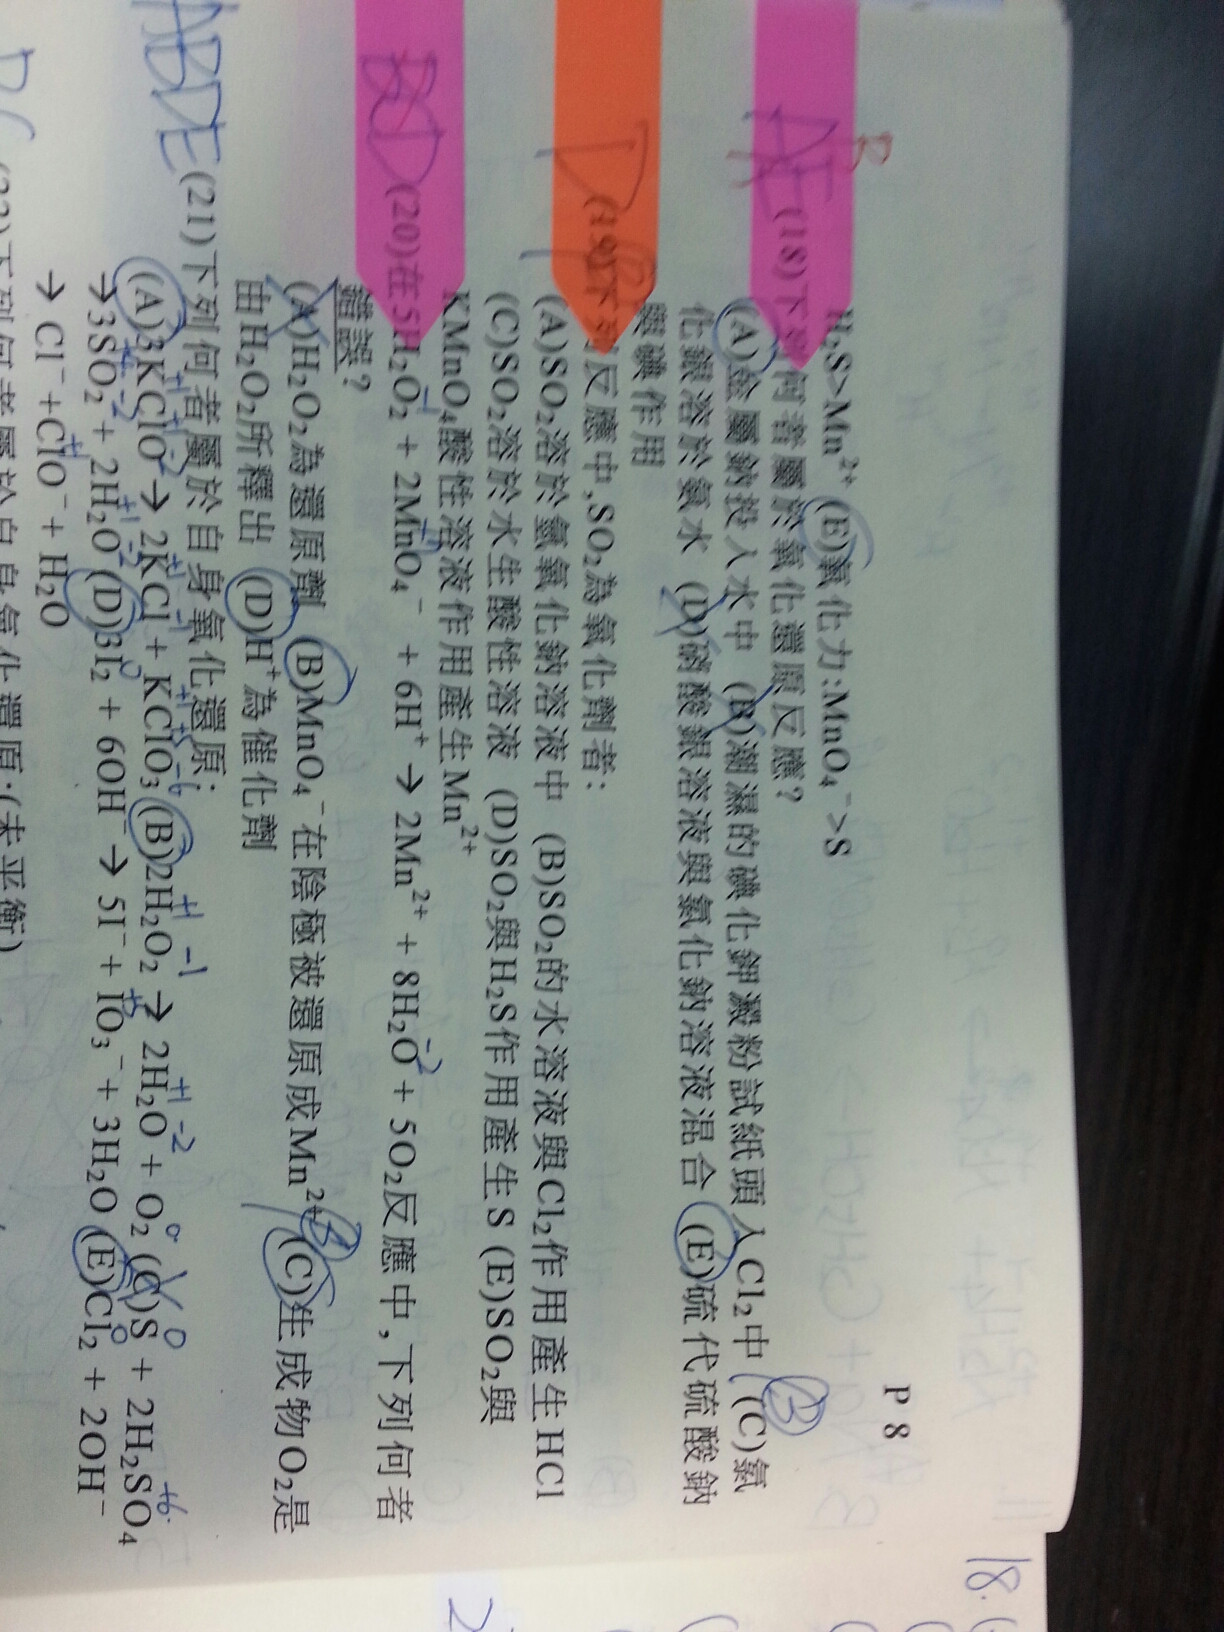 P 8
H₂S>Mn²⁺ (E)氧化力:MnO₄⁻>S
AE B (18)下列何者屬於氧化還原反應?
(A)金屬鈉投入水中 (B)潮濕的碘化鉀澱粉試紙頭入Cl₂中 (C)氯
化銀溶於氨水 (D)硝酸銀溶液與氯化鈉溶液混合 (E)硫代硫酸鈉
與碘作用
D (19)下列反應中,SO₂為氧化劑者:
(A)SO₂溶於氫氧化鈉溶液中 (B)SO₂的水溶液與Cl₂作用產生HCl
(C)SO₂溶於水生酸性溶液 (D)SO₂與H₂S作用產生S (E)SO₂與
KMnO₄酸性溶液作用產生Mn²⁺
(20)在5H₂O₂ + 2MnO₄⁻ + 6H⁺ → 2Mn²⁺ + 8H₂O + 5O₂反應中,下列何者
錯誤?
(A)H₂O₂為還原劑 (B)MnO₄⁻在陰極被還原成Mn²⁺ (C)生成物O₂是
由H₂O₂所釋出 (D)H⁺為催化劑
ABDE (21)下列何者屬於自身氧化還原:
(A)3KClO → 2KCl + KClO₃ (B)2H₂O₂ → 2H₂O + O₂ (C)S + 2H₂SO₄
→3SO₂ + 2H₂O (D)3I₂ + 6OH⁻ → 5I⁻ + IO₃⁻ + 3H₂O (E)Cl₂ + 2OH⁻
→ Cl⁻+ClO⁻+ H₂O
(22)下列何者屬於自身氧化還原:(未平衡)
18.